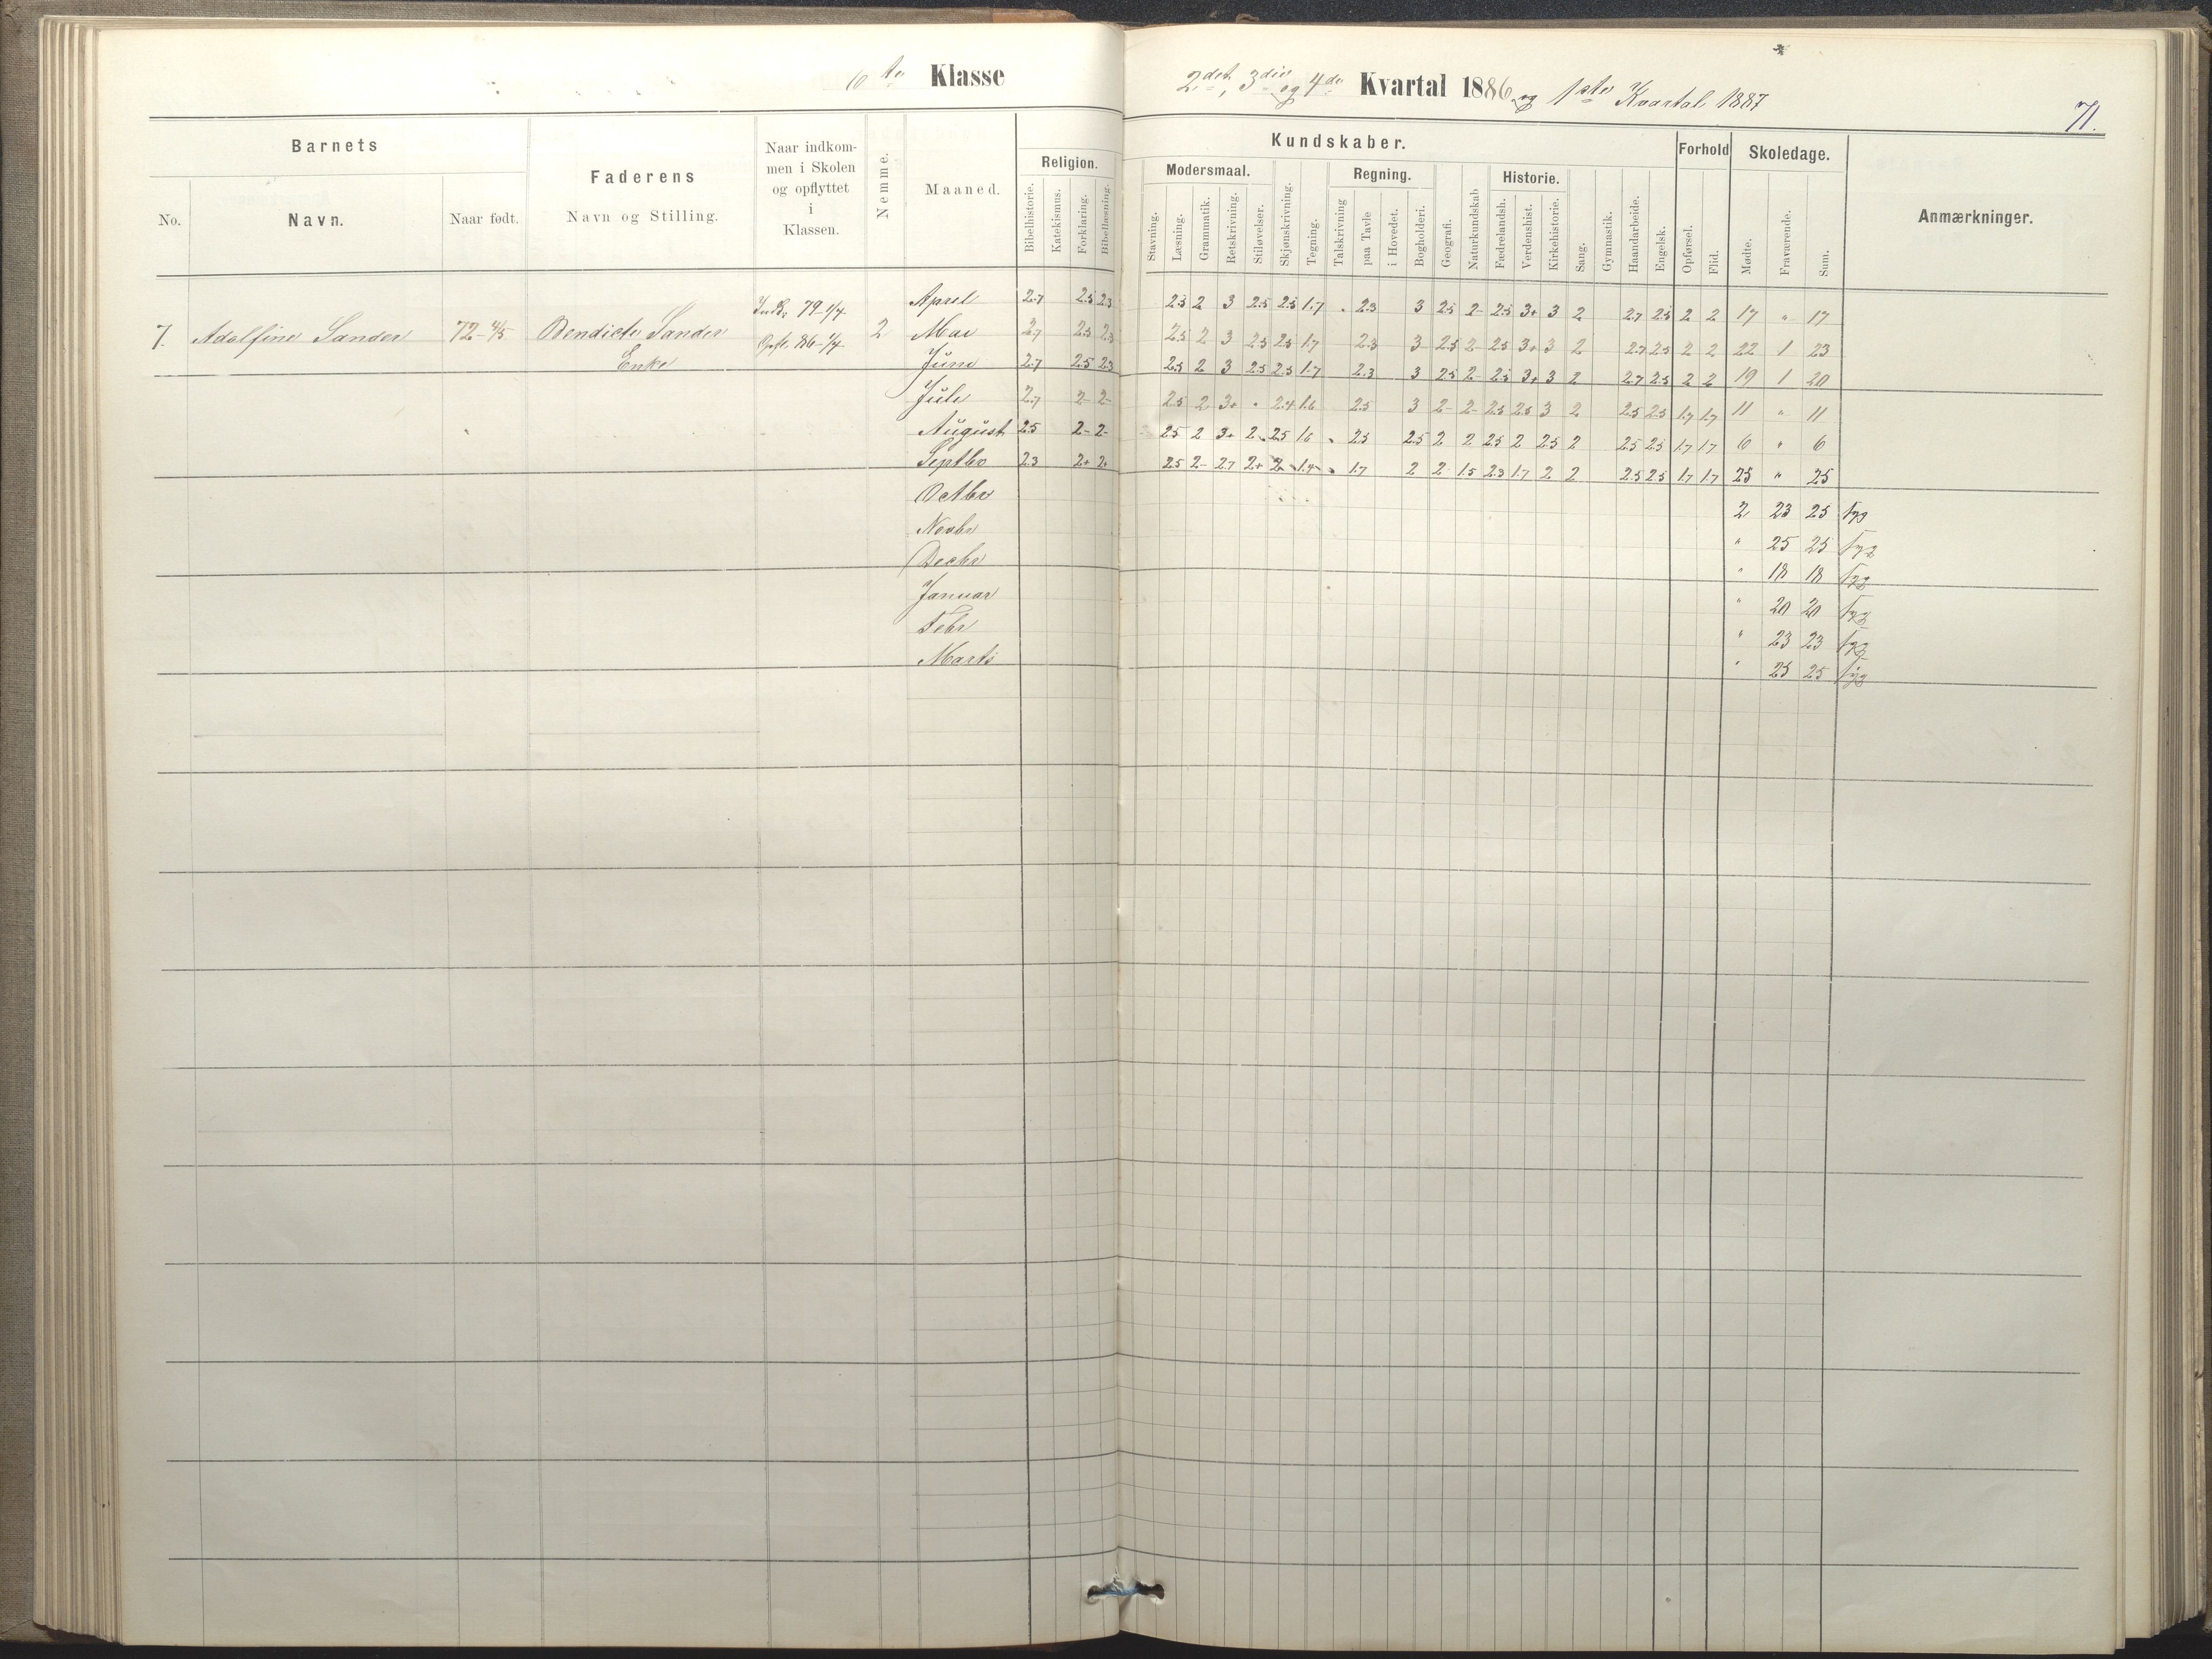 6te Klasse
2det, 3die og 4de Kvartal 1886 og 1ste Kvartal 1887
71.
Barnets
No.
Navn.
Naar født.
Faderens
Navn og Stilling.
Naar indkom-
men i Skolen
og opflyttet
i
Klassen.
Nemme.
Maaned.
Religion.
Bibelhistorie.
Katekismus.
Forklaring.
Bibellæsning.
Kundskaber.
Modersmaal.
Stavning.
Læsning.
Grammatik.
Retskrivning.
Stiløvelser.
Skjønskrivning.
Tegning.
Regning.
Talskrivning
paa Tavle
i Hovedet.
Bogholderi.
Geografi.
Naturkundskab
Historie.
Fædrelandsh.
Verdenshist.
Kirkehistorie.
Sang.
Gymnastik.
Haandarbeide.
Engelsk.
Forhold
Opførsel.
Flid.
Skoledage.
Mødte.
Fraværende.
Sum.
Anmærkninger.
7. Adolfine Sander 72- 4/5 Bendicte Sander
Enke
79-1/4
86-1/4
2
April 2.7 2.5 2.3 2.5 2 3 2.5 2.5 1.7 " 2.3 3 2.5 2- 2.5 3+ 3 2 2.7 2.5 2 2 17 " 17
Mai 2.7 2.5 2.3 2.5 2 3 2.5 2.5 1.7 2.3 3 2.5 2- 2.5 3+ 3 2 2.7 2.5 2 2 22 1 23
Juni 2.7 2.5 2.3 2.5 2 3 2.5 2.5 1.7 2.3 3 2.5 2- 2.5 3+ 3 2 2.7 2.5 2 2 19 1 20
Juli 2.7 2- 2- 2.5 2 3+ " 2.4 1.6 2.5 3 2- 2- 2.5 2.5 3 2 2.5 2.5 1.7 1.7 11 " 11
August 2.5 2- 2- 2.5 2 3+ 2 2.5 1.6 " 2.5 2.5 2 2 2.5 2 2.5 2 2.5 2.5 1.7 1.7 6 " 6
Septbr 2.3 2+ 2+ 2.5 2- 2.7 2+ 2 1.4 " 1.7 2 2 1.5 2.3 1.7 2 2 2.5 2.5 1.7 1.7 25 " 25
Octbr 2 23 25 syg
Novbr " 25 25 syg
Decbr " 18 18 syg
Januar " 20 20 syg
Febr " 23 23 syg
Marts " 25 25 syg